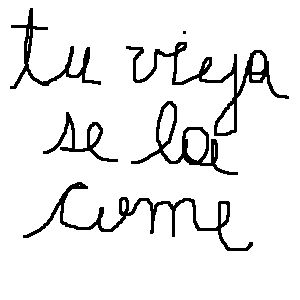 tu vieja
se la
come